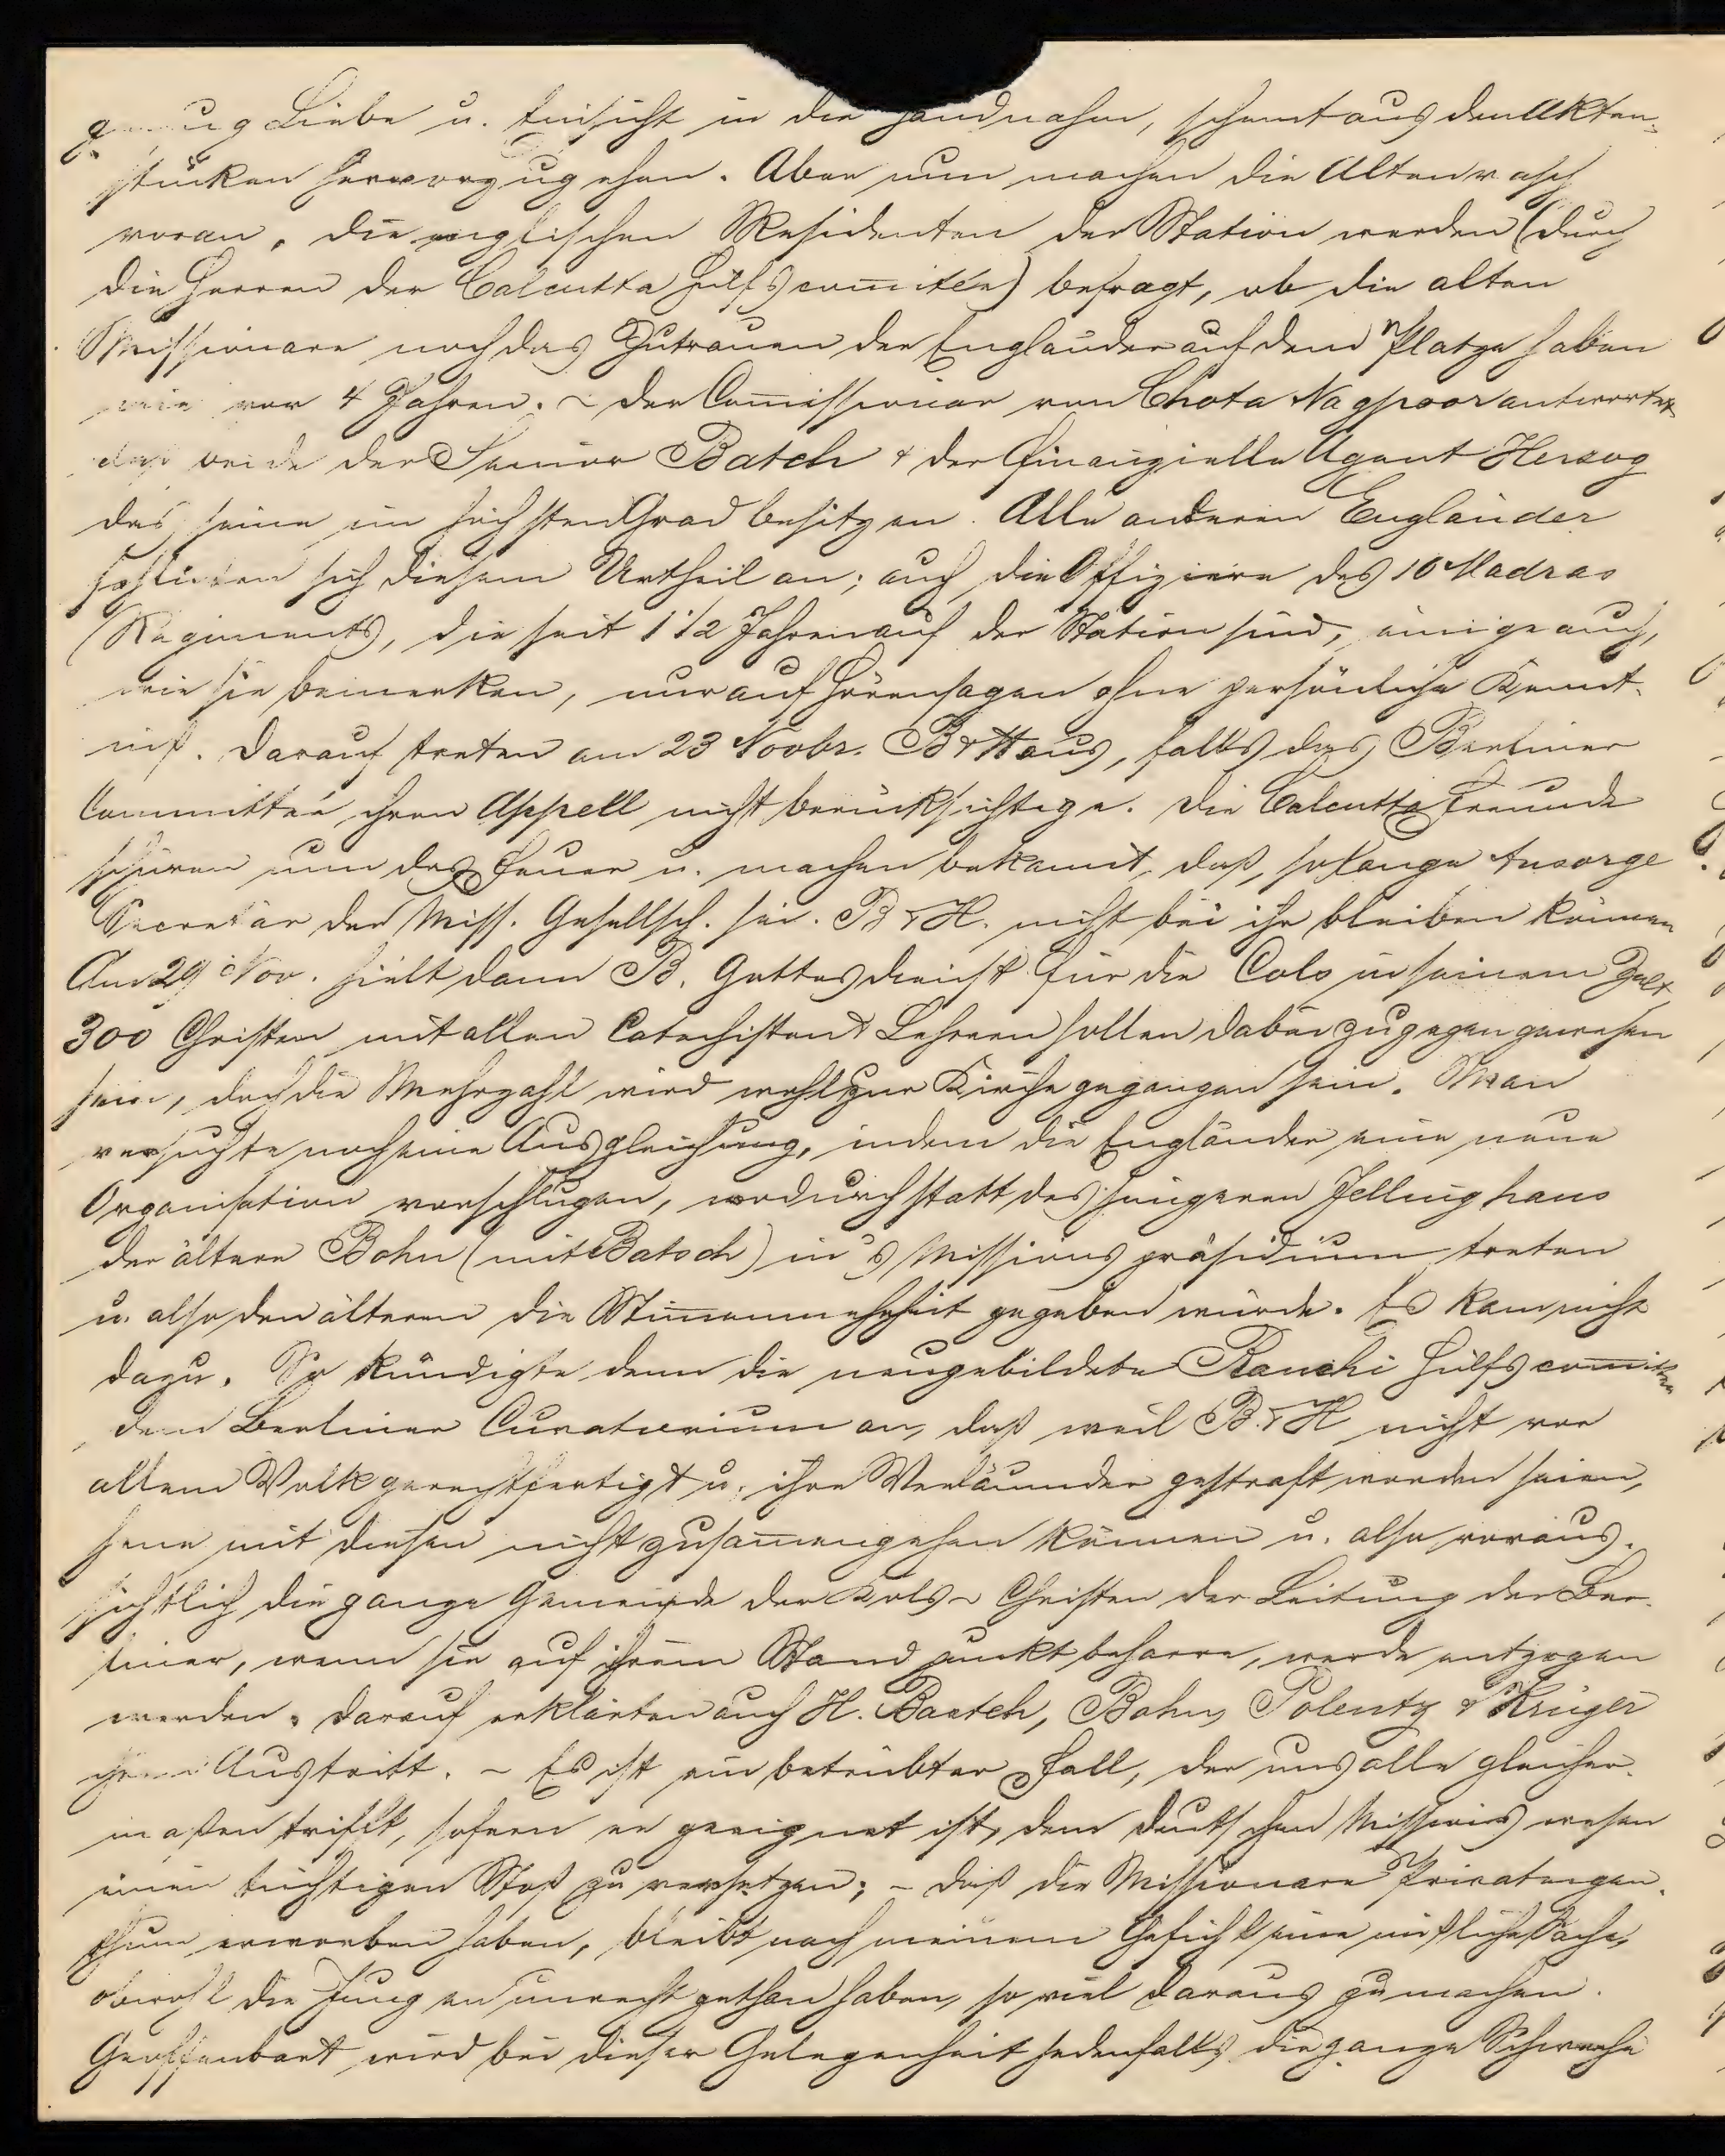 genug Liebe u. Einsicht in die Hand nahm, scheint aus den Akten-
stücken hervorzugehen. Aber nun machen die Alten rasch
voran. Die englischen Residenten der Station werden (durch
die Herren der Calcutta Hülfscom̅itée) befragt, ob die alten
Missionare noch das Zutrauen der Engländer auf dem Platze haben
wie vor 4 Jahren. – Der Com̅issionär von Chota Nagpoor antwortet,
daß beide der Senior Batch & der finanzielle Agent Herzog
das seine im höchsten Grad besitzen. Alle anderen Engländer
schließen sich diesem Urtheil an; auch die Offiziere des 10 Madras
Regiments, die seit 1 1/2 Jahren auf der Station sind, einige auch,
wie sie bemerken, nur auf Hörensagen ohne persönliche Kennt-
niß. Darauf treten am 23 Novbr. B & H aus, falls das Berliner
Committée ihren Appell nicht berücksichtige. Die Calcutta Freunde
schüren nun das Feuer u. machen bekannt, daß, so lange Ansorge
Secretär der Miss. Gesellsch. sei. B & H. nicht bei ihr bleiben können
Am 29 Nov. hielt dann B. Gottesdienst für die Cols in seinem Zelt,
300 Christen mit allen Catechisten & Lehrern sollen dabei zugegen gewesen
sein, doch die Mehrzahl wird wohl zur Kirche gegangen sein. Man
versuchte noch eine Ausgleichung, indem die Engländer eine neue
Organisation vorschlugen, wodurch statt des jüngeren Jellinghaus
der ältere Bohn (mit Batsch) in's Missionspräsidium treten
u. also den älteren die Stimmenmehrheit gegeben würde. Es kam nicht
dazu. So kündigte denn die neugebildete Ranchi Hülfscom̅ittee
dem Berliner Curatorium an, daß weil B. & H nicht vor
allem Volk gerechtfertigt u. ihre Verläumder gestraft worden seien,
jene mit diesen nicht zusam̅engehen können u. also voraus-
sichtlich die ganze Gemeinde der Kols-Christen der Leitung der Ber-
liner, wenn sie auf ihrem Standpunkt beharre, werde entzogen
werden. Darauf erklärten auch H. Baatch, Bohn, Polentz & Krüger
ihren Austritt. – Es ist ein betrübter Fall, der uns alle gleicher-
maßen trifft, sofern er geeignet ist, dem deutschen Missionswesen
einen tüchtigen Stoß zu versetzen; – daß die Missionare Privateigen-
thum erworben haben, bleibt nach meinem Gefühl eine mißliche Sache,
obwohl die Jungen unrecht gethan haben, so viel daraus zu machen.
Geoffenbart wird bei dieser Gelegenheit jedenfalls die ganze Schwäche